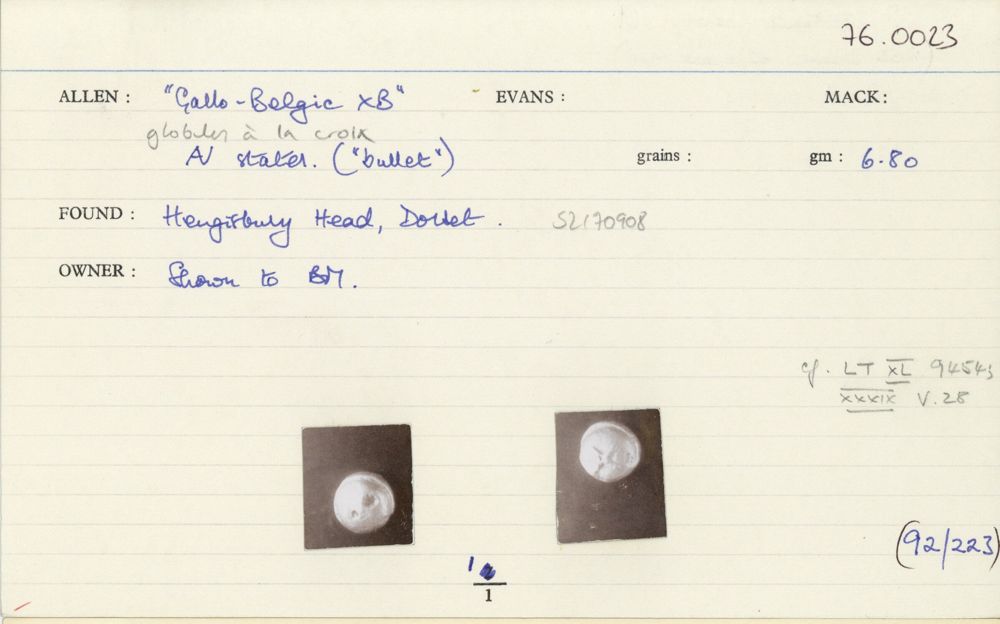 76.0023
ALLEN : "Gallo-Belgic XB" EVANS : MACK:
globules à la croix
AV stater. ("bullet") grains : gm : 6.80
FOUND : Hengistbury Head, Dorset. SZ170908
OWNER : Shown to BM.
cf. LT XL 9454,
XXXIX V.28
(92/223)
1
1